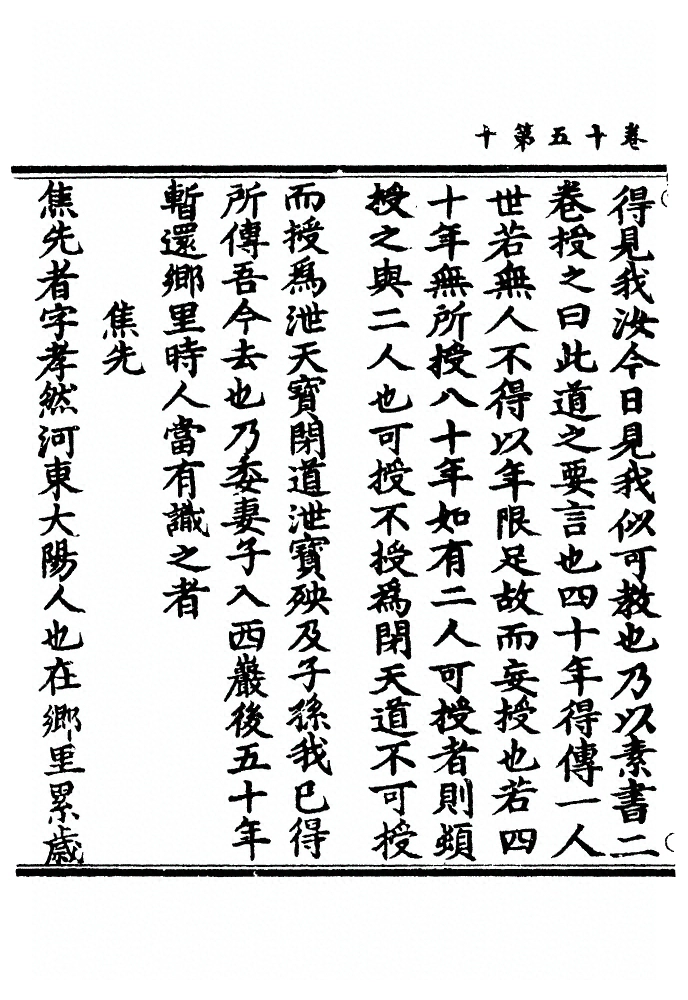 卷十五第十
得見我汝今日見我似可教也乃以素書二
卷授之曰此道之要言也四十年得傳一人
世若無人不得以年限足故而妄授也若四
十年無所授八十年如有二人可授者則頓
授之與二人也可授不授爲閉天道不可授
而授爲泄天寶閉道泄寶殃及子孫我已得
所傳吾今去也乃委妻子入西巖後五十年
暫還鄉里時人當有識之者
焦先
焦先者字孝然河東大陽人也在鄉里累歲